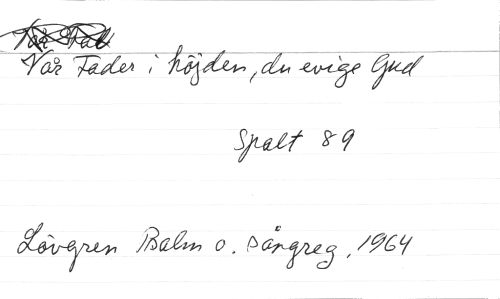 Vår Fader i höjden, du evige Gud
Spalt 89
Lövgren Psalm o. sångreg. 1964